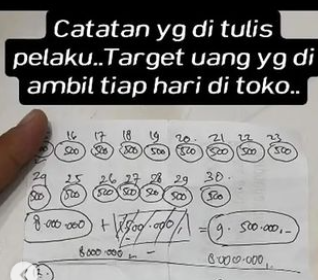 Catatan yg di tulis
pelaku..Target uang yg di
ambil tiap hari di toko..
16 17 18 19 20 21 22 23
500 500 500 500 500 500 500 500
24 25 26 27 28 29 30
500 500 500 500 500 500 500
8.000.000 + 1.500.000 = 9.500.000,-
8000.000,- 8.000.000,